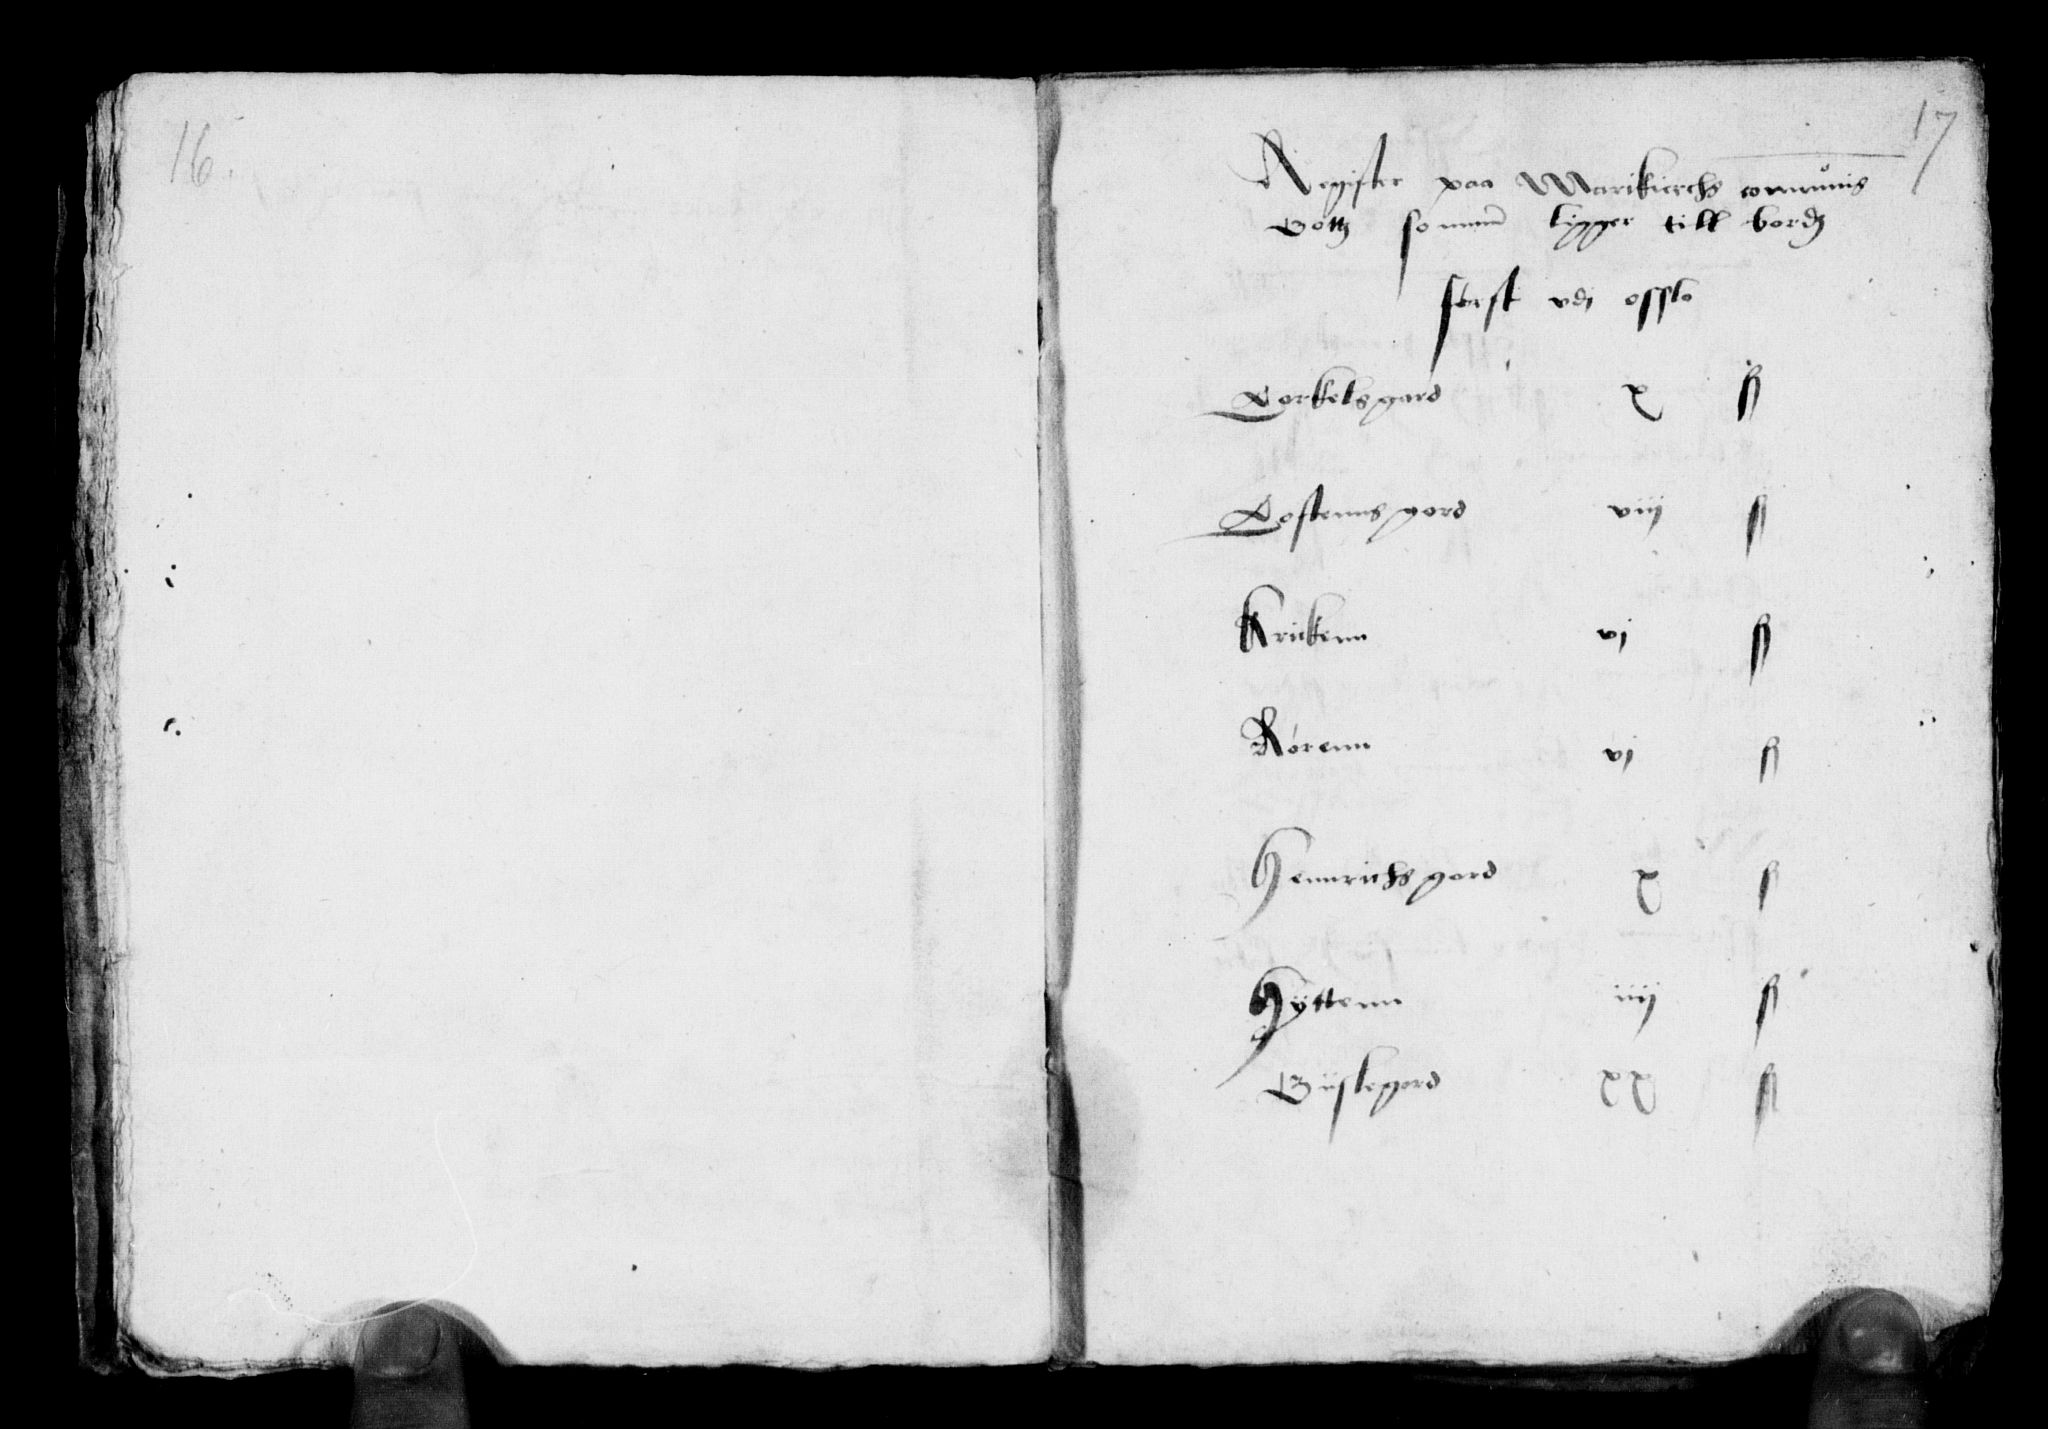 16.
17
Register paa Marikierchs comunis
Gottz somm ligger till bordz
først vdi osslo
Torkelsgard x ß
Tostenns gord viij ß
Krickenn vj ß
Rørenn vj ß
Hennrichs gord x ß
Hyttenn iiij ß
Güslegord xx ß